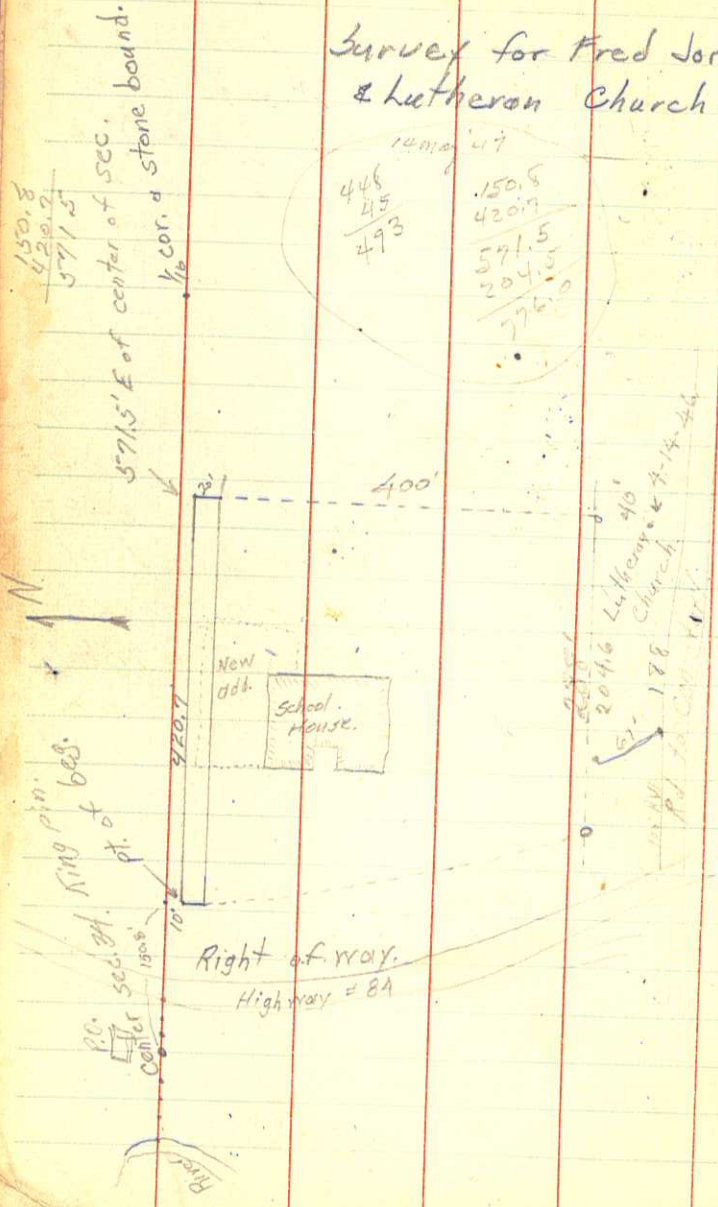 Survey for Fred Jor
& Lutheran Church
14 may 47
448
45
493
150.8
420.7
571.5
204.5
776.0
150.8
420.7
571.5
571.5' E of center of sec.
1/16 cor. & stone bound.
N
20'
400'
420.7
New
add.
School
House.
40'
204.6 Lutheran
Church 4-14-46
188
51-
King pin.
pt. of beg.
10'
150.8'
Right of way.
Highway #84
P.O.
Center sec. 34.
River